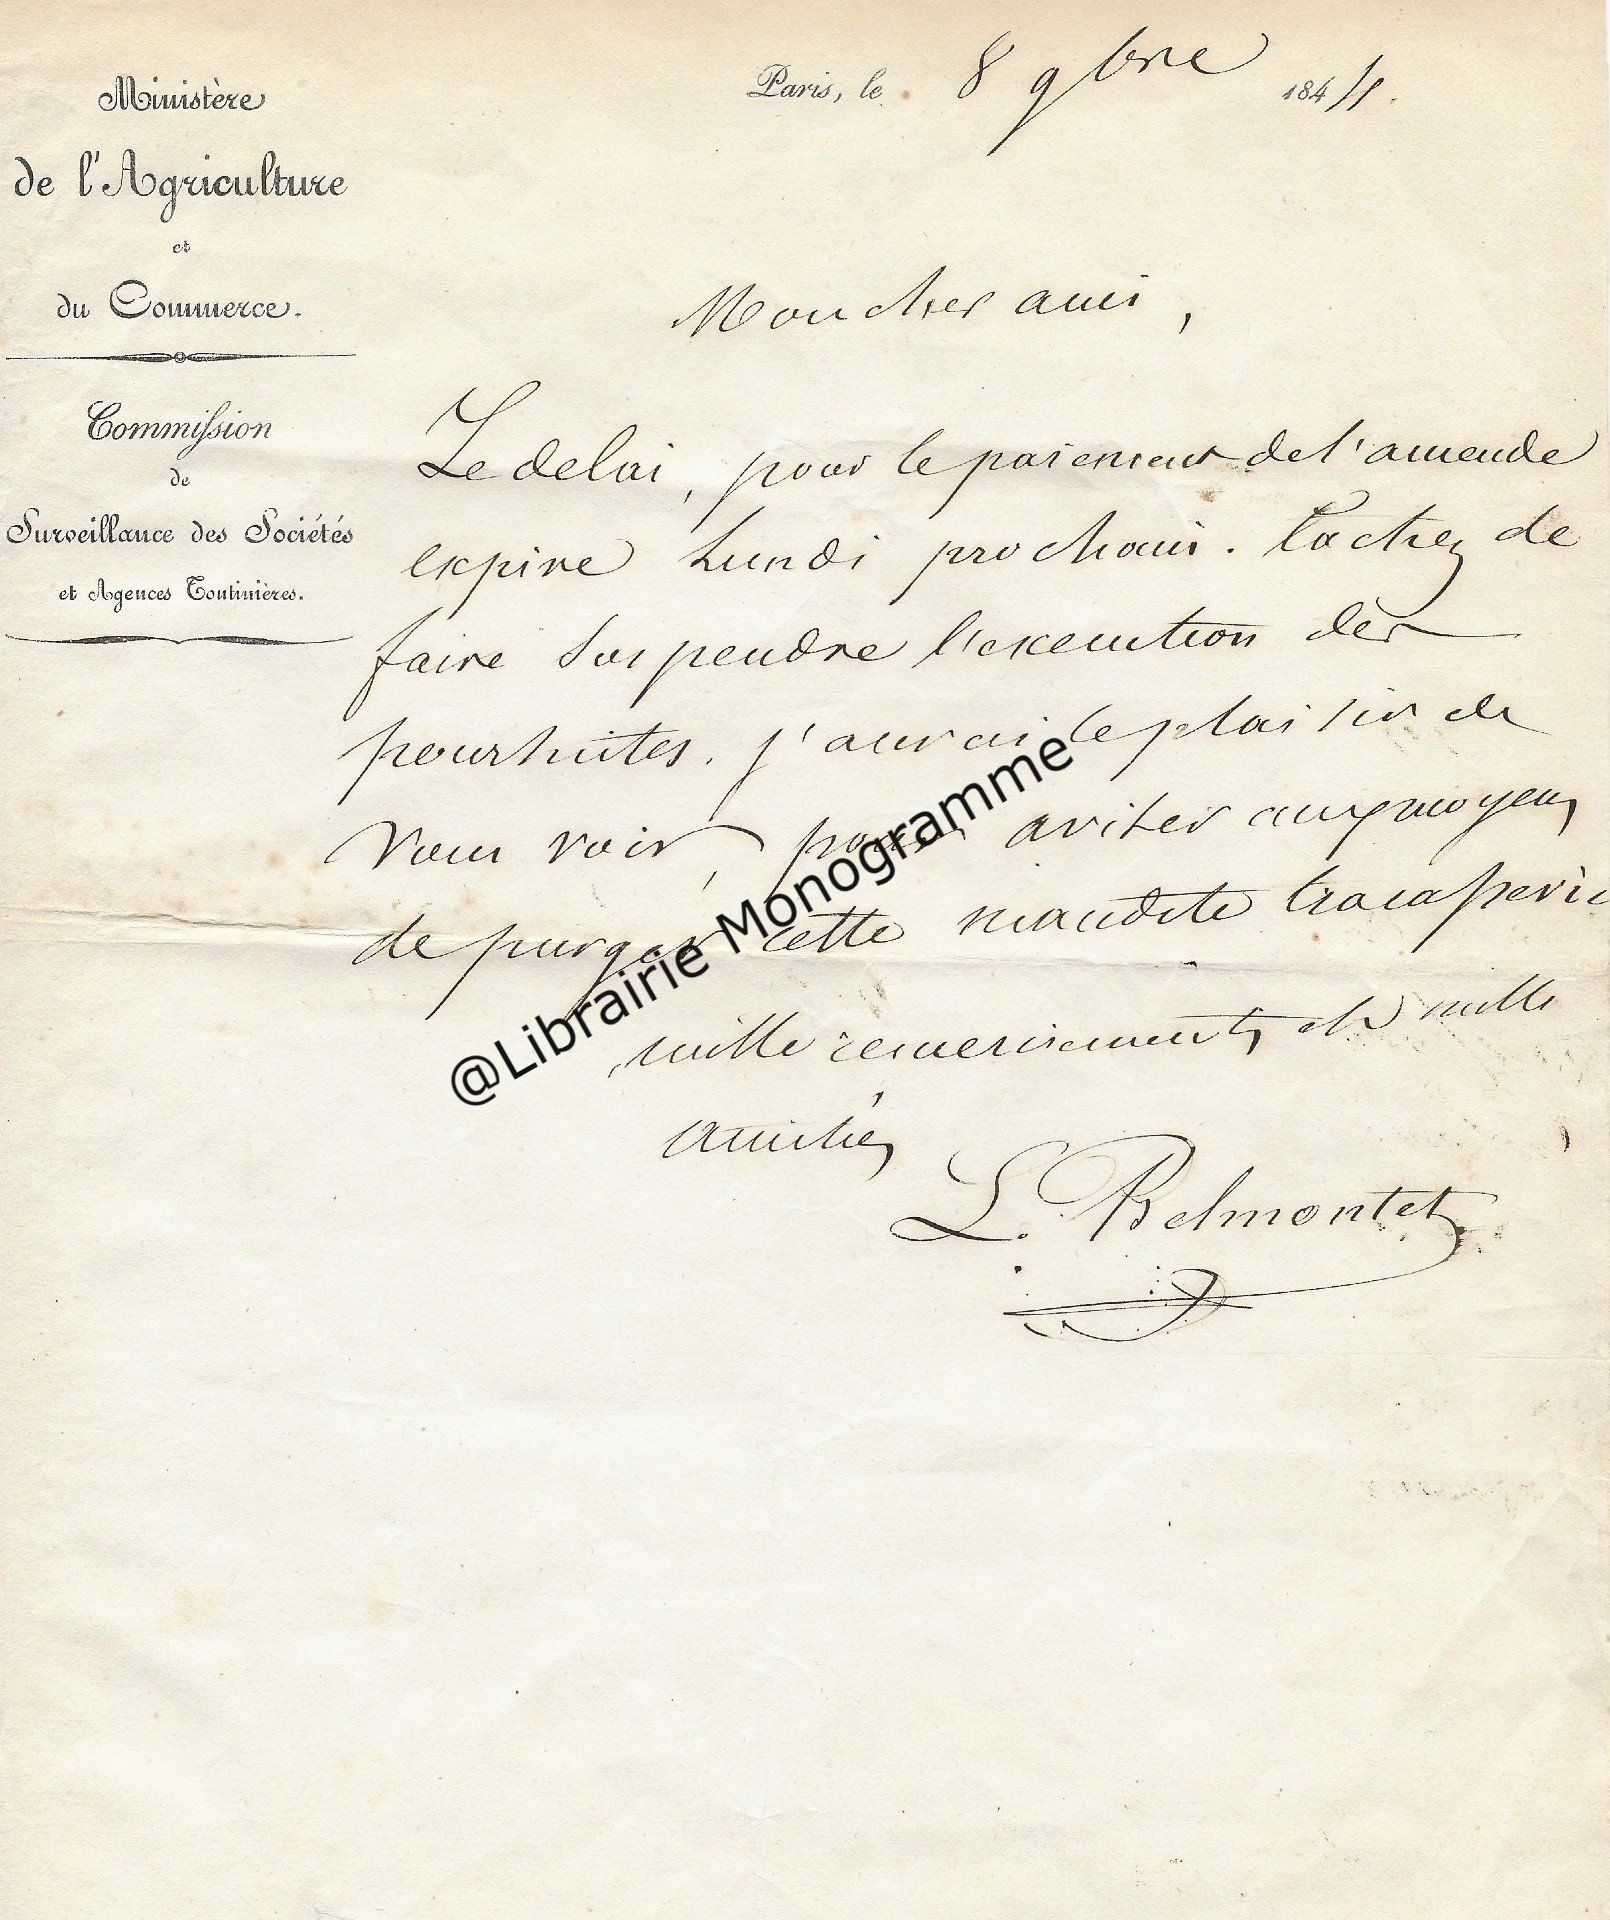 Ministère
de l'Agriculture
et
du Commerce.
Commission
de
Surveillance des Sociétés
et Agences Tontinières.
Paris, le 8 9bre 184
Mon cher ami,
Le delai, pour le paiement de l'amende
expire Lundi prochain. Tachez de
faire suspendre l'execution des
poursuites. j'aurai le plaisir de
vous voir, pour aviser aux moyens
de purger cette maudite tracasserie
mille remerciements et mille
amitiés
L. Belmontet
@Librairie Monogramme